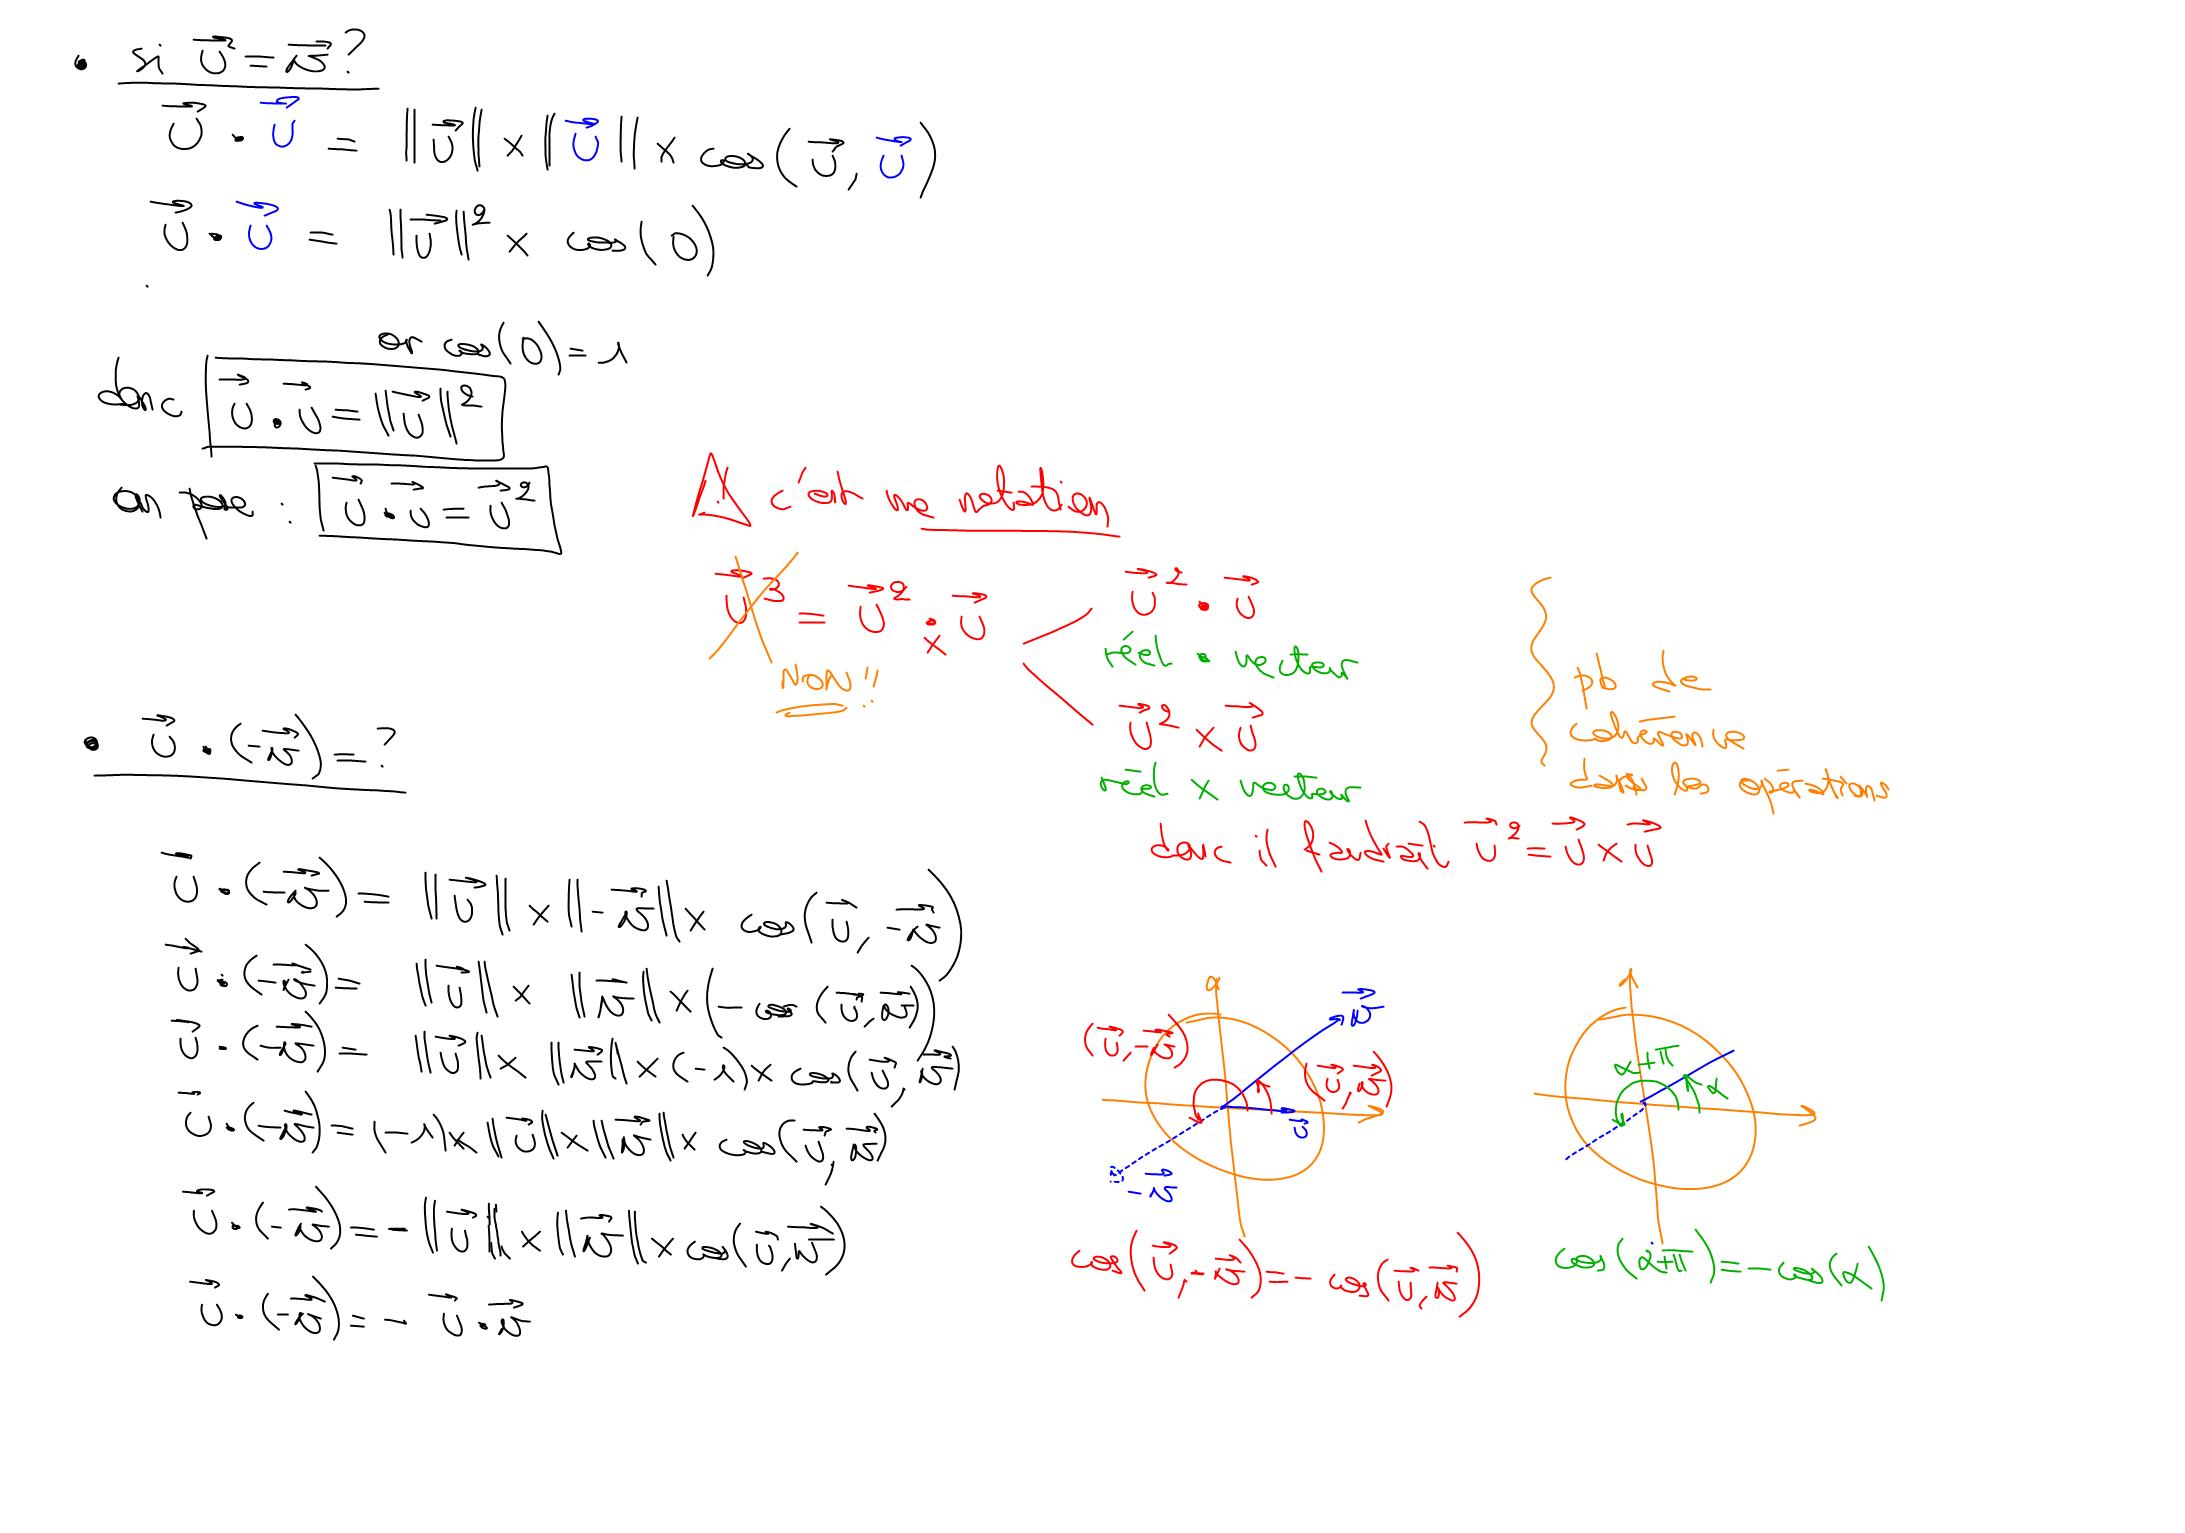 • si u⃗ = v⃗ ?
u⃗ · u⃗ = ||u⃗|| × ||u⃗|| × cos(u⃗, u⃗)
u⃗ · u⃗ = ||u⃗||² × cos(0)
or cos(0) = 1
donc u⃗ · u⃗ = ||u⃗||²
on pose : u⃗ · u⃗ = u⃗²
⚠ c'est une notation
u⃗³ = u⃗² · u⃗
×
NON!!
u⃗² · u⃗
réel · vecteur
u⃗² × u⃗
réel × vecteur
pb de
cohérence
dans les opérations
donc il faudrait u⃗² = u⃗ × u⃗
• u⃗ · (-v⃗) = ?
u⃗ · (-v⃗) = ||u⃗|| × ||-v⃗|| × cos(u⃗, -v⃗)
u⃗ · (-v⃗) = ||u⃗|| × ||v⃗|| × (-cos(u⃗, v⃗))
u⃗ · (-v⃗) = ||u⃗|| × ||v⃗|| × (-1) × cos(u⃗, v⃗)
u⃗ · (-v⃗) = (-1) × ||u⃗|| × ||v⃗|| × cos(u⃗, v⃗)
u⃗ · (-v⃗) = - ||u⃗|| × ||v⃗|| × cos(u⃗, v⃗)
u⃗ · (-v⃗) = - u⃗ · v⃗
v⃗
(u⃗, -v⃗)
(u⃗, v⃗)
u⃗
-v⃗
cos(u⃗, -v⃗) = - cos(u⃗, v⃗)
α+π
α
cos(α+π) = - cos(α)